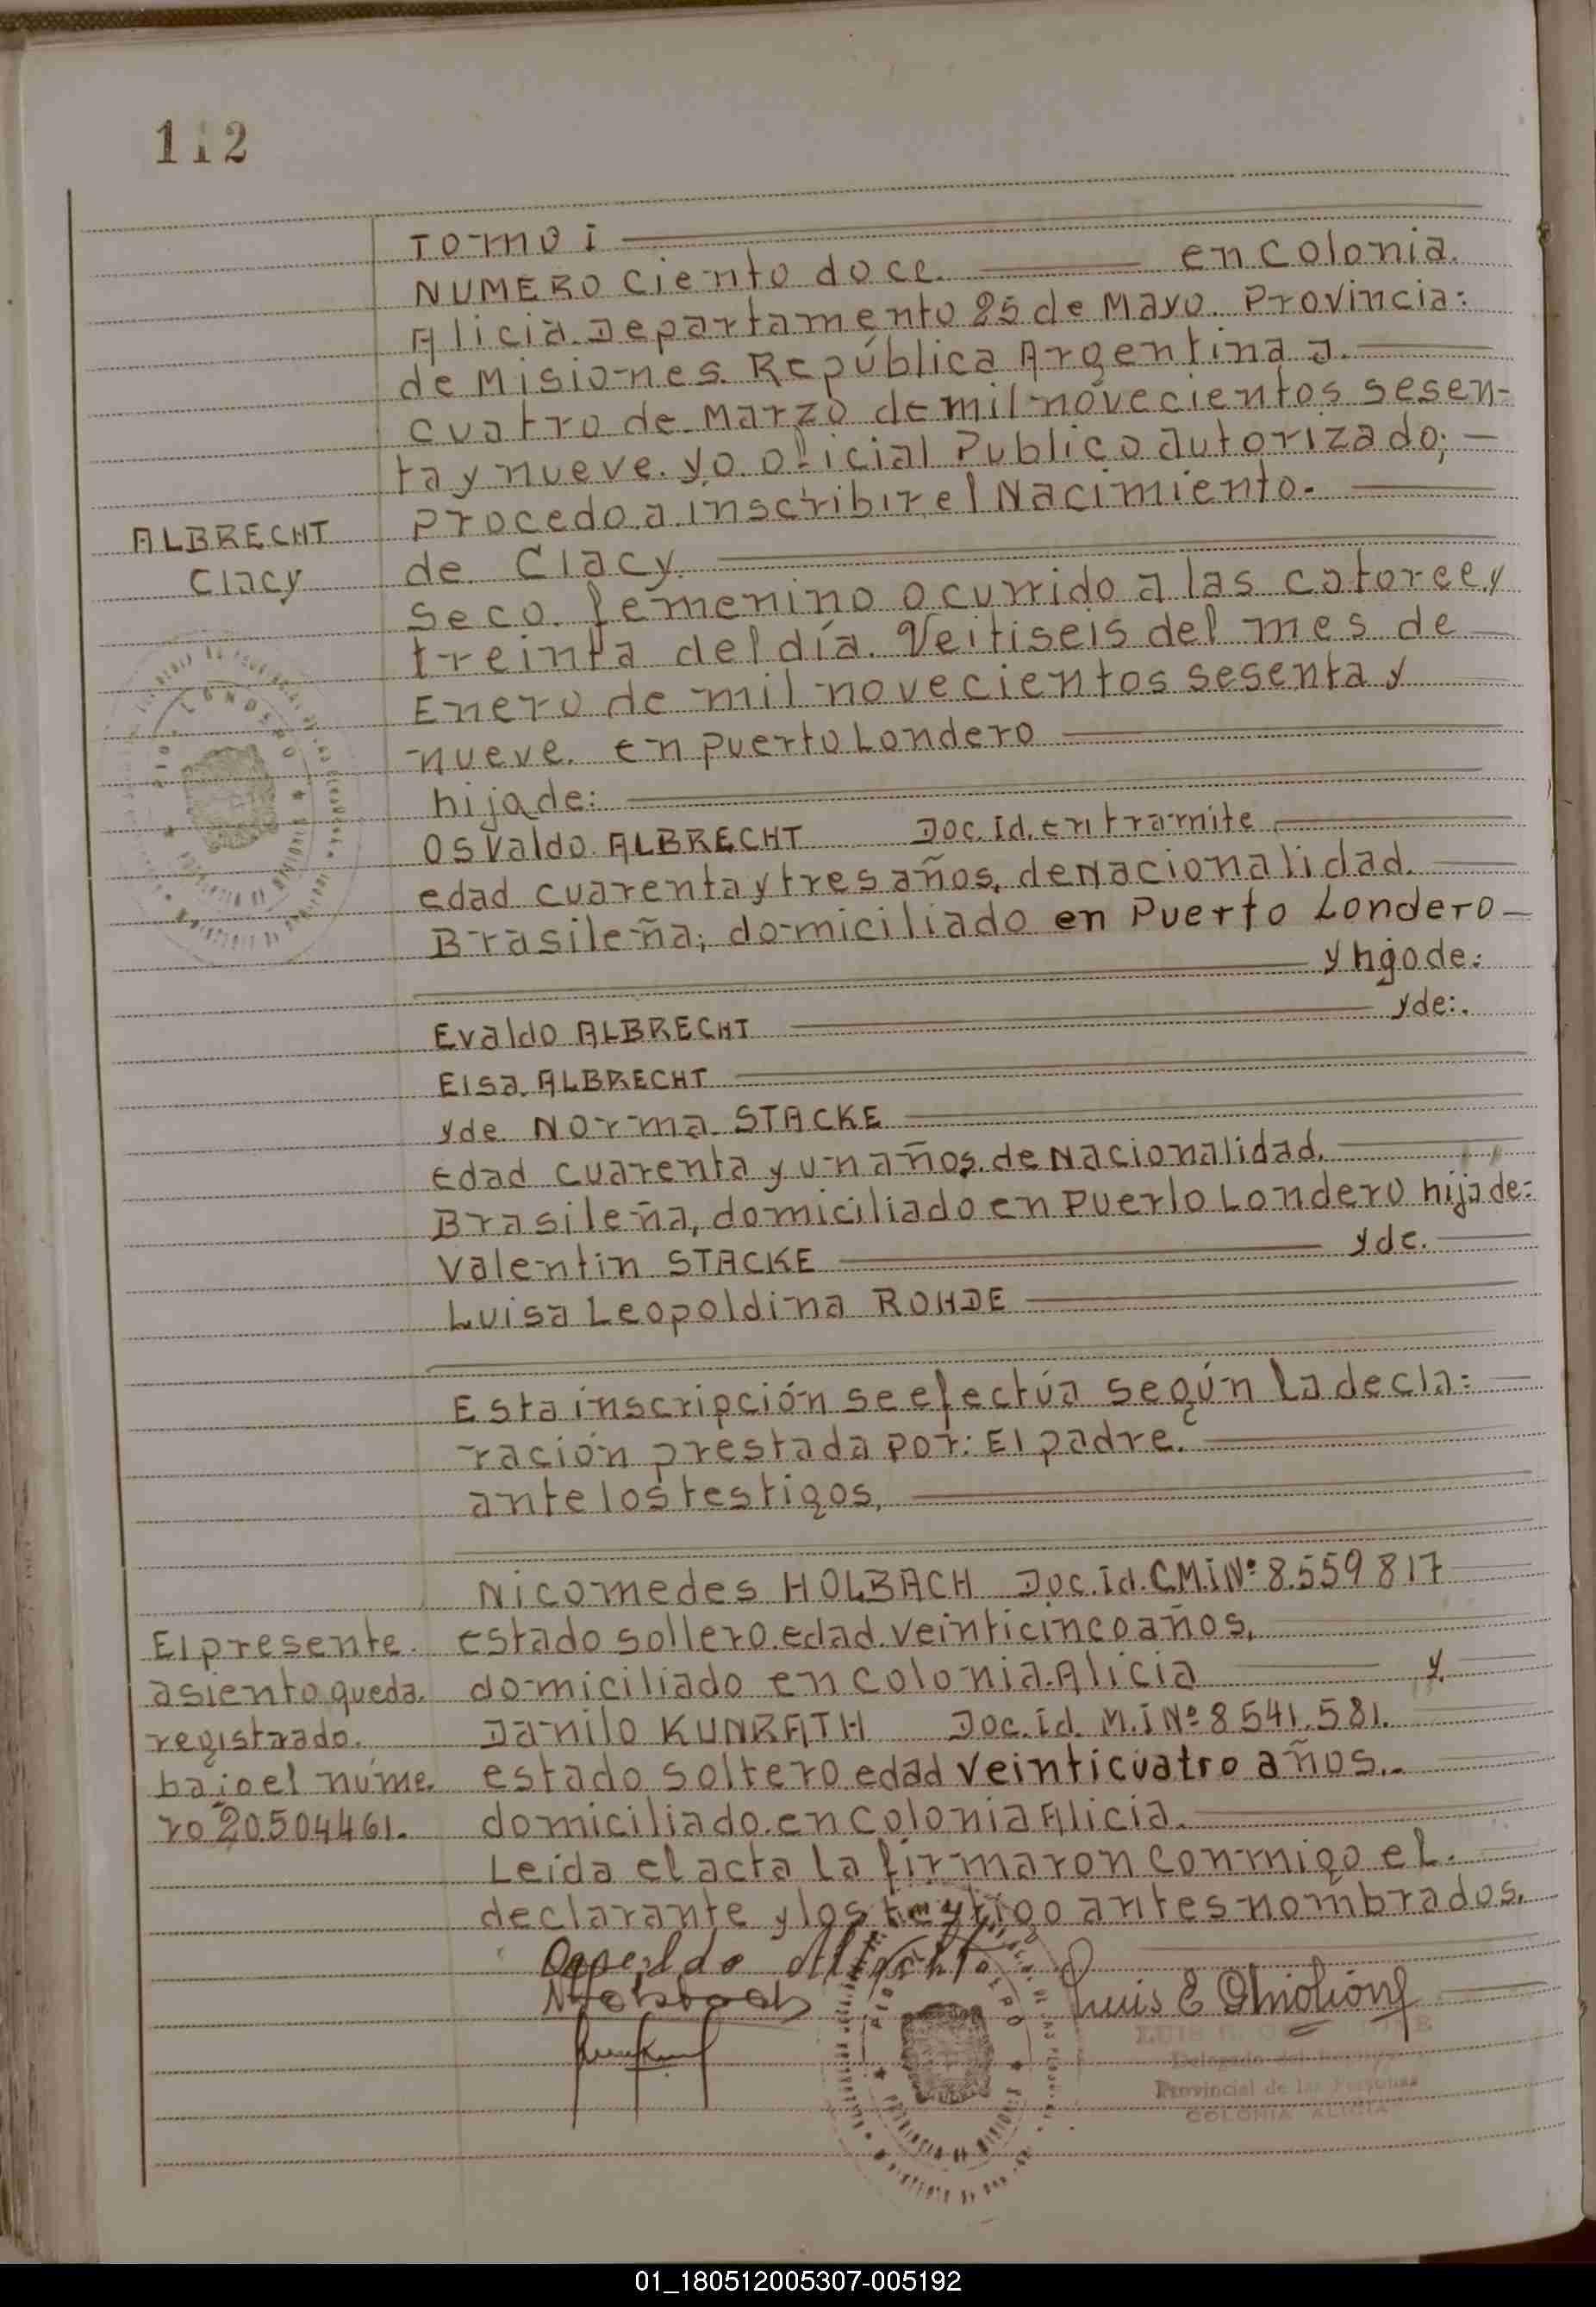 112
TOMO I
NUMERO Ciento doce. en Colonia.
Alicia. Departamento 25 de Mayo. Provincia:
de Misiones. República Argentina a.
cuatro de Marzo de mil novecientos sesen-
ta y nueve. yo. oficial Publico autorizado;
Procedo a inscribir el Nacimiento.
ALBRECHT
Clacy
de Clacy.
Seco. femenino ocurrido a las catorce y
treinta del día. Veitiseis del mes de
Enero de mil novecientos sesenta y
nueve. en Puerto Londero
hija de:
Osvaldo ALBRECHT Doc. Id. en tramite
edad cuarenta y tres años, de Nacionalidad.
Brasileña; domiciliado en Puerto Londero
y hijo de:
Evaldo ALBRECHT y de:.
Elsa ALBRECHT
y de Norma STACKE
edad cuarenta y un años. de Nacionalidad.
Brasileña, domiciliado en Puerto Londero hija de:
Valentin STACKE y de.
Luisa Leopoldina ROHDE
Esta inscripción se efectúa según La decla=
ración prestada por: El padre.
ante los testigos,
Nicomedes HOLBACH Doc. Id. C.M.I Nº 8.559817
estado soltero. edad veinticinco años,
domiciliado en Colonia Alicia y.
Danilo KUNRATH Doc. Id. M.I Nº 8541.581.
estado soltero. edad veinticuatro años..
domiciliado en Colonia Alicia.
El presente.
asiento queda.
registrado.
bajo el núme.
ro 20504461.
Leída el acta La firmaron conmigo el.
declarante y los testigo antes nombrados.
Provincial de las Personas
COLONIA ALICIA
01_180512005307-005192